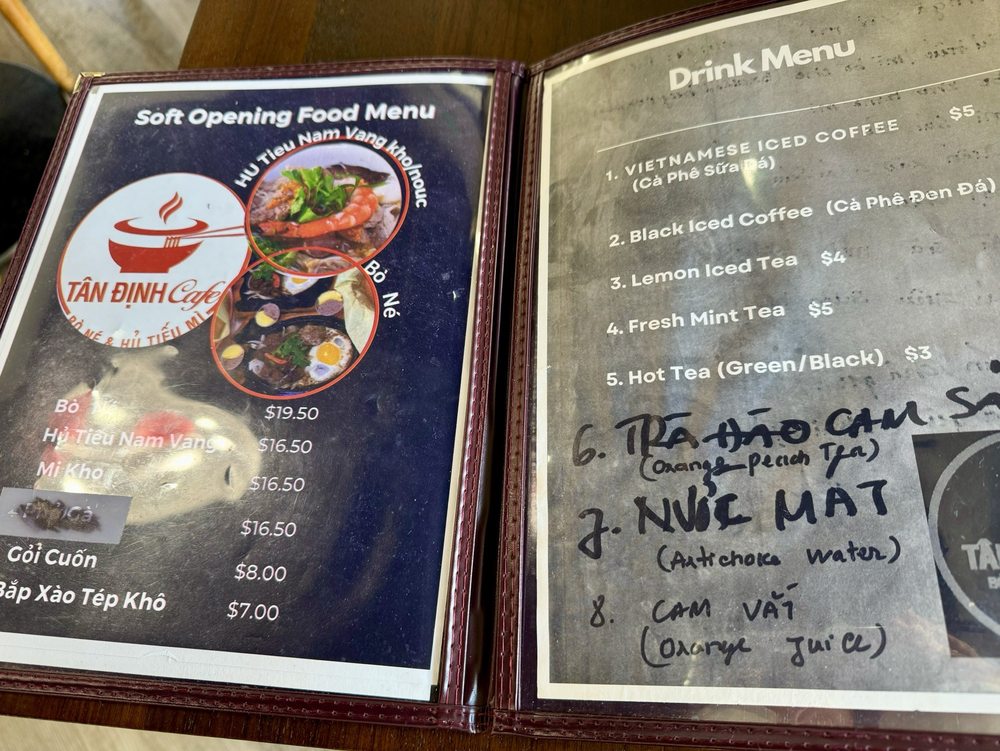 Soft Opening Food Menu
HU Tieu Nam Vang kho/nouc
Bò Né
TÂN ĐỊNH Cafe
BÒ NÉ & HỦ TIẾU MÌ
Bò $19.50
Hủ Tiêu Nam Vang $16.50
Mì Kho $16.50
$16.50
Gỏi Cuốn $8.00
Bắp Xào Tép Khô $7.00
Drink Menu
1. VIETNAMESE ICED COFFEE $5
(Cà Phê Sữa Đá)
2. Black Iced Coffee (Cà Phê Đen Đá)
3. Lemon Iced Tea $4
4. Fresh Mint Tea $5
5. Hot Tea (Green/Black) $3
6. TRÀ ĐÀO CAM SẢ
(Orange Peach Tea)
7. NƯỚC MAT
(Artichoke Water)
8. CAM VẮT
(Orange Juice)
TÂN